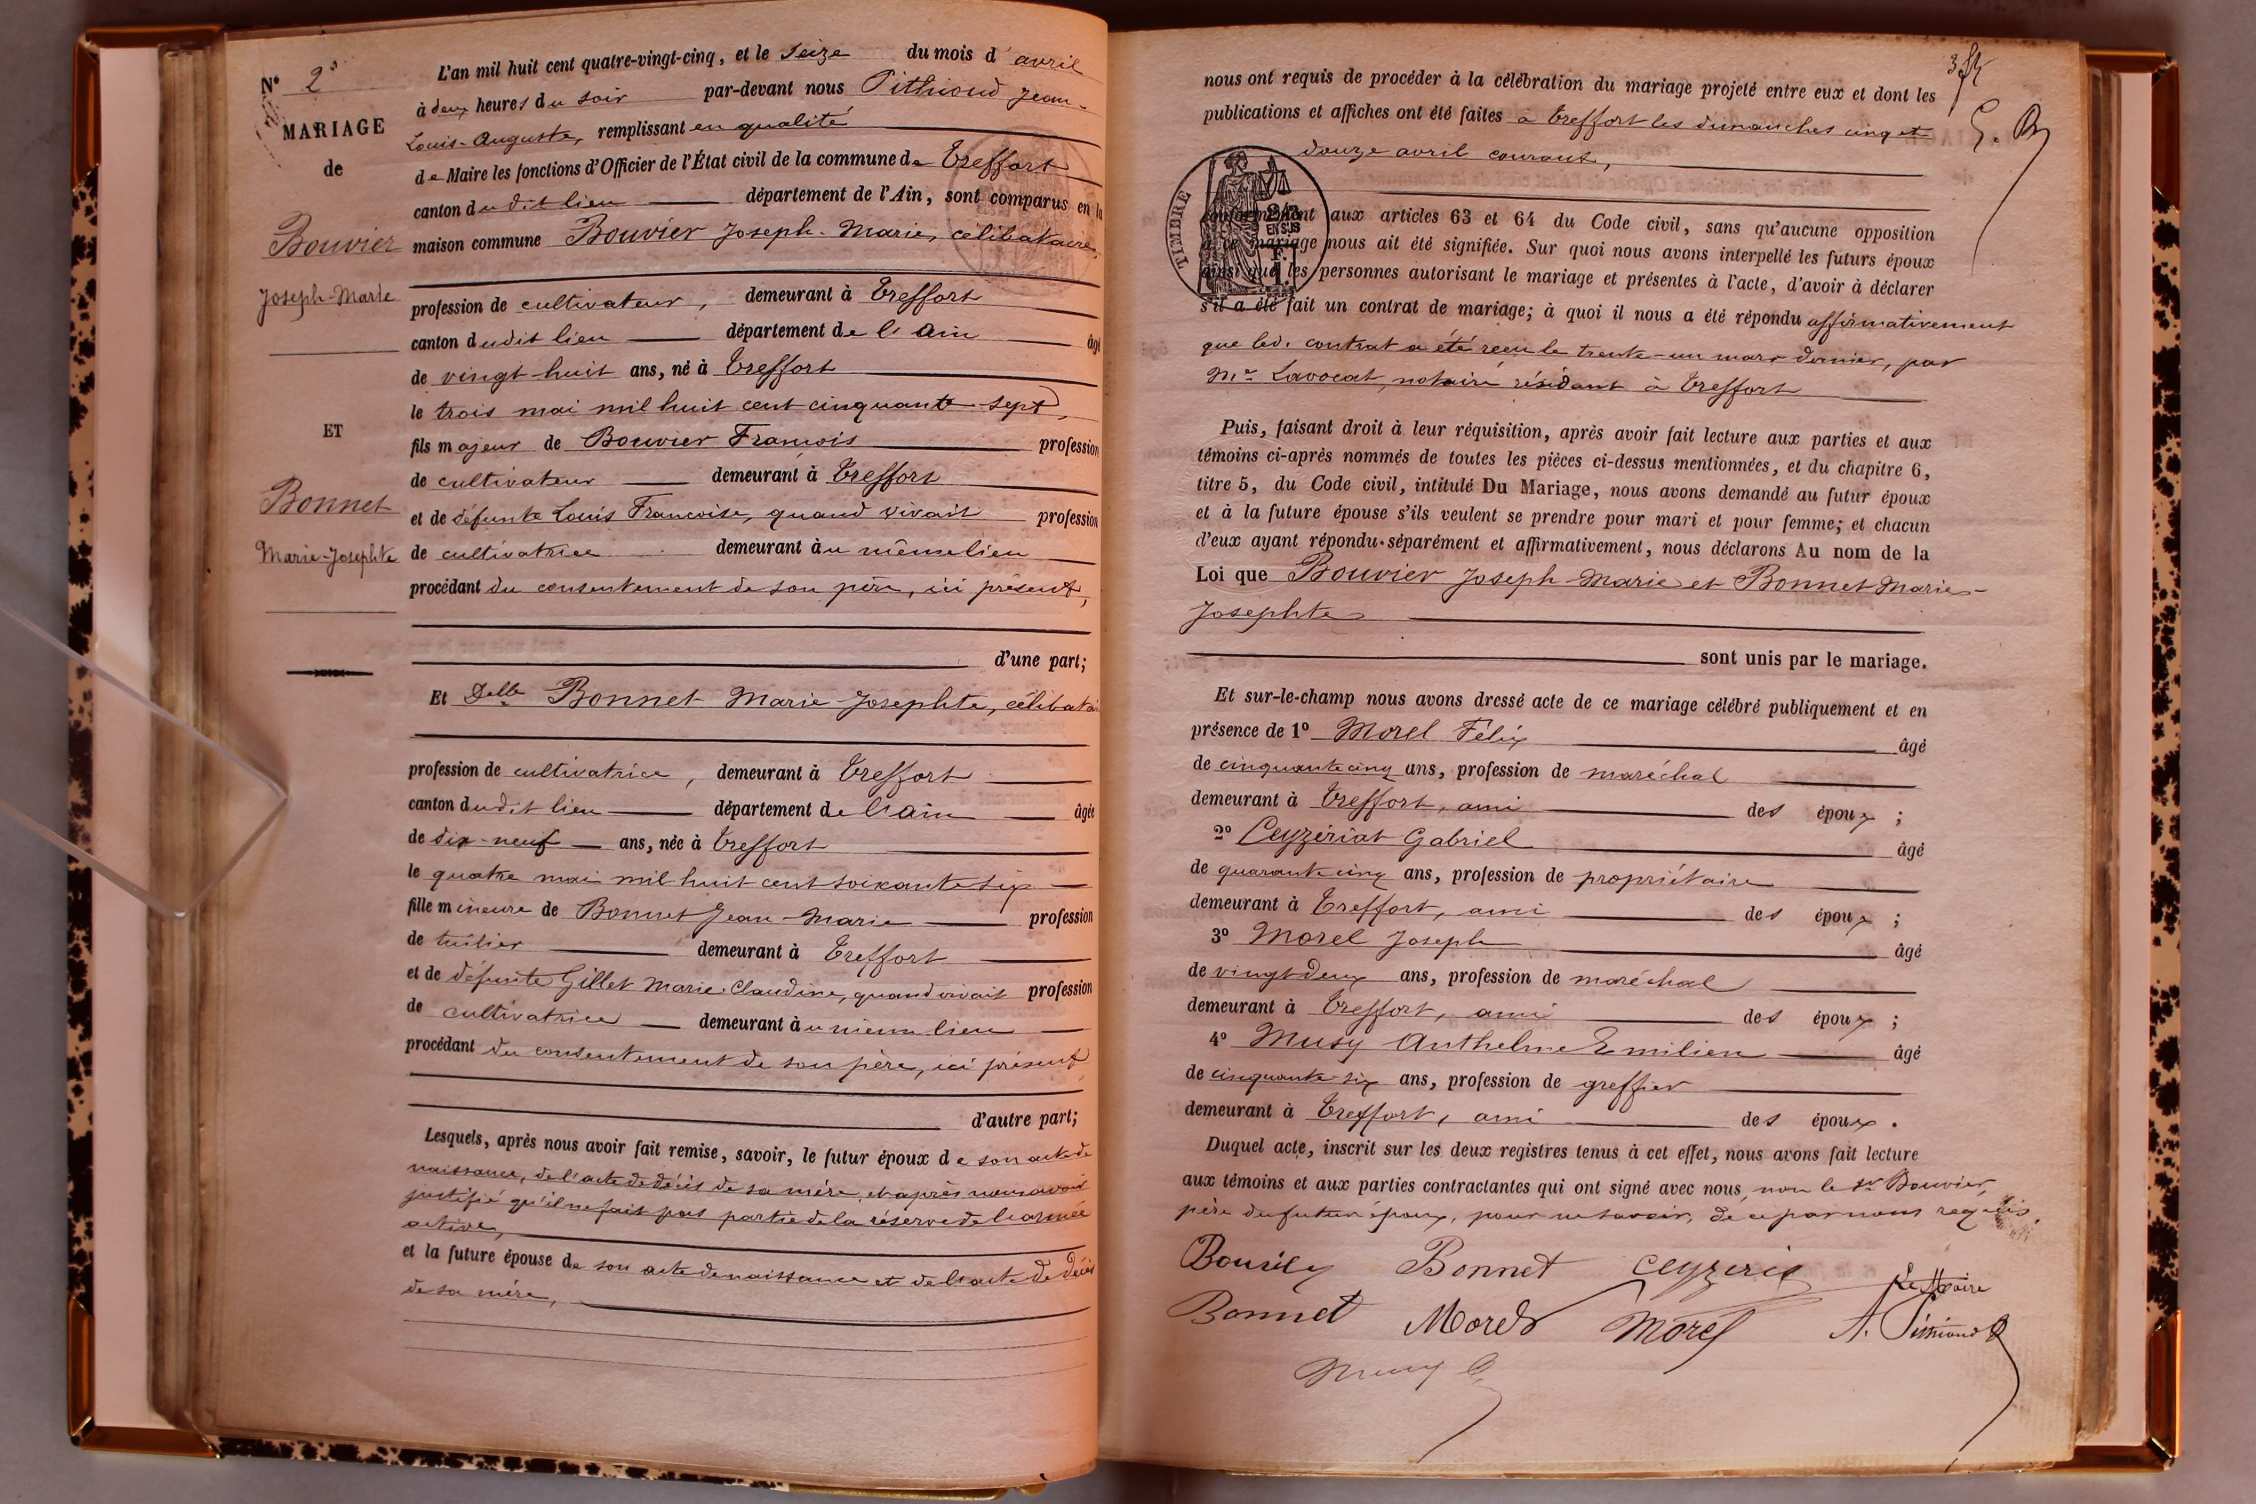 N° 2
MARIAGE
de
Bouvier
Joseph-Marie
ET
Bonnet
Marie-Josephte
L'an mil huit cent quatre-vingt-cinq, et le seize du mois d'avril
à deux heures du soir par-devant nous Pithioud Jean-
Louis-Auguste, remplissant en qualité
de Maire les fonctions d'Officier de l'État civil de la commune de Treffort
canton dudit lieu département de l'Ain, sont comparus en la
maison commune Bouvier Joseph-Marie, célibataire,
profession de cultivateur, demeurant à Treffort
canton dudit lieu département de l'Ain âgé
de vingt-huit ans, né à Treffort
le trois mai mil huit cent cinquante-sept,
fils majeur de Bouvier François profession
de cultivateur demeurant à Treffort
et de défunte Louis Françoise, quand vivait profession
de cultivatrice demeurant au même lieu
procédant du consentement de son père, ici présent,
d'une part;
Et Delle Bonnet Marie-Josephte, célibatai
profession de cultivatrice, demeurant à Treffort
canton dudit lieu département de l'Ain âgée
de dix-neuf ans, née à Treffort
le quatre mai mil huit cent soixante six
fille mineure de Bonnet Jean-Marie profession
de tuilier demeurant à Treffort
et de défunte Gillet Marie-Claudine, quand vivait profession
de cultivatrice demeurant au même lieu
procédant du consentement de son père, ici présent
d'autre part;
Lesquels, après nous avoir fait remise, savoir, le futur époux de son acte de
naissance, de l'acte de décès de sa mère, et après nous avoir
justifié qu'il ne fait pas partie de la réserve de l'armée
active,
et la future épouse de son acte de naissance et de l'acte de décès
de sa mère,
nous ont requis de procéder à la célébration du mariage projeté entre eux et dont les
publications et affiches ont été faites à Treffort les dimanches cinq et
douze avril courant,
TIMBRE
conformément aux articles 63 et 64 du Code civil, sans qu'aucune opposition
à ce mariage nous ait été signifiée. Sur quoi nous avons interpellé les futurs époux
ainsi que les personnes autorisant le mariage et présentes à l'acte, d'avoir à déclarer
s'il a été fait un contrat de mariage; à quoi il nous a été répondu affirmativement
que led. contrat a été reçu le trente-un mars dernier, par
Me Lavocat, notaire résidant à Treffort
Puis, faisant droit à leur réquisition, après avoir fait lecture aux parties et aux
témoins ci-après nommés de toutes les pièces ci-dessus mentionnées, et du chapitre 6,
titre 5, du Code civil, intitulé Du Mariage, nous avons demandé au futur époux
et à la future épouse s'ils veulent se prendre pour mari et pour femme; et chacun
d'eux ayant répondu séparément et affirmativement, nous déclarons Au nom de la
Loi que Bouvier Joseph-Marie et Bonnet Marie-
Josephte
sont unis par le mariage.
Et sur-le-champ nous avons dressé acte de ce mariage célébré publiquement et en
présence de 1° Morel Félix âgé
de cinquante cinq ans, profession de maréchal
demeurant à Treffort, ami des époux ;
2° Ceyzériat Gabriel âgé
de quarante cinq ans, profession de propriétaire
demeurant à Treffort, ami des époux ;
3° Morel Joseph âgé
de vingt deux ans, profession de maréchal
demeurant à Treffort, ami des époux ;
4° Musy Anthelme Emilien âgé
de cinquante-six ans, profession de greffier
demeurant à Treffort, ami des époux.
Duquel acte, inscrit sur les deux registres tenus à cet effet, nous avons fait lecture
aux témoins et aux parties contractantes qui ont signé avec nous, non le sr Bouvier,
père du futur époux, pour ne savoir, de ce par nous requis.
Bonnet
Le Maire
Bonnet Morel Morel A. Pithioud
Musy